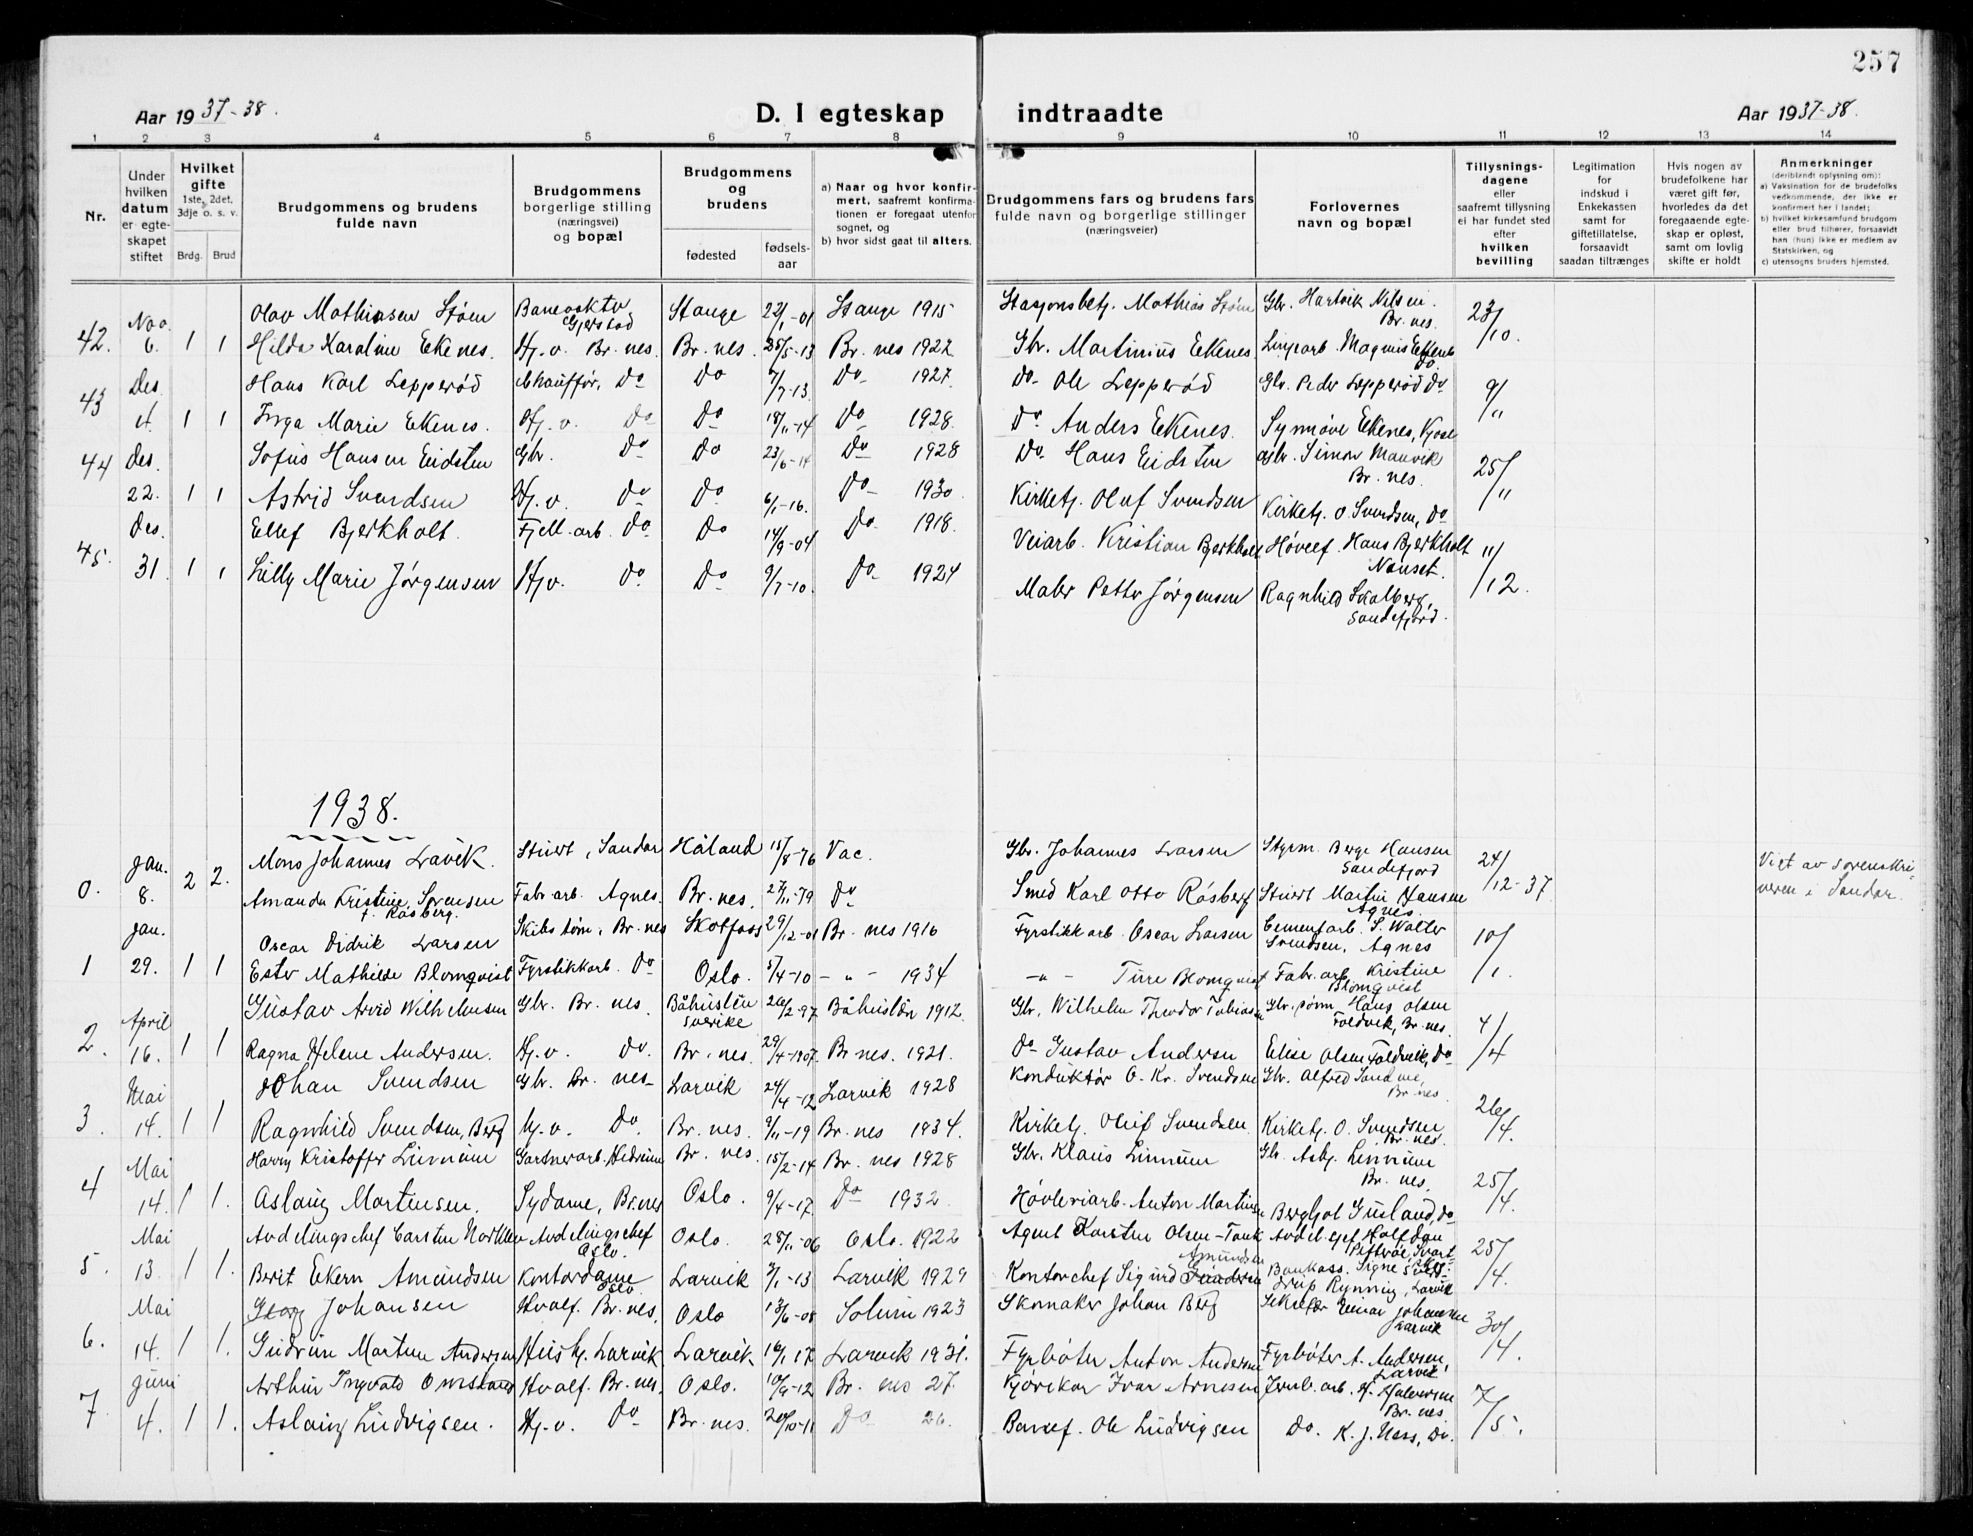 257
Aar 1937-38.
D. I egteskap indtraadte
Aar 1937-38.
1 2 3 4 5 6 7 8 9 10 11 12 13 14
Nr.
Under hvilken datum er egteskapet stiftet
Hvilket gifte 1ste, 2det, 3dje o. s. v.
Brdg. Brud
Brudgommens og brudens fulde navn
Brudgommens borgerlige stilling (næringsvei) og bopæl
Brudgommens og brudens
fødested fødsels-aar
a) Naar og hvor konfirmert, saafremt konfirmationen er foregaat utenfor sognet, og
b) hvor sidst gaat til alters.
Brudgommens fars og brudens fars fulde navn og borgerlige stillinger (næringsveier)
Forlovernes navn og bopæl
Tillysningsdagene eller saafremt tillysning ei har fundet sted efter hvilken bevilling
Legitimation for indskud i Enkekassen samt for giftetillatelse, forsaavidt saadan tiltrænges
Hvis nogen av brudefolkene har været gift før, hvorledes da det foregaaende egteskap er opløst, samt om lovlig skifte er holdt
Anmerkninger (deriblandt oplysning om):
a) Vaksination for de brudefolks vedkommende, der ikke er konfirmert her i landet;
b) hvilket kirkesamfund brudgom eller brud tilhører, forsaavidt han (hun) ikke er medlem av Statskirken, og
c) utensogns bruders hjemsted.
42. Nov. 6. 1 1 Olav Mathinsen Støen Banevokter Gjerstad Stange 22/1-01 Stange 1915 Stasjonsbetj. Mathias Støen Gbr. Hartvik Nilsen. Br.nes. 23/10.
Hilda Karaline Eekenes. Hj.v. Br.nes. Br.nes. 25/5-13 Br.nes 1927 Gbr. Martinius Eekenes Linjearb. Magnus Eekenes do.
43 Des. 4. 1 1 Hans Karl Lepperød Chauffør, Do Do 7/7-13. Do 1927. Do Ole Lepperød Gbr. Peder Lepperød Do 9/11
Inga Marie Eekenes. Hj.v. Do Do 18/11-14 Do 1928. Do Anders Eekenes. Synnøve Eekenes, Kjose
44 Des. 22. 1 1 Sofus Hansen Eidsten Gbr. Do Do 23/6-14 Do 1928 Do. Hans Eidsten Gbr. Simon Manvik Br.nes. 25/11
Astrid Svendsen Hj.v. Do Do 6/1-16. Do 1930 Kirketj. Oluf Svendsen Kirketj. O Svendsen, Do
45. Des. 31. 1 1 Ellef Bjerkholt. Fjell.arb. Do Do 14/9-04 Do 1918. Veiarb. Kristian Bjerkholt Høvlef. Hans Bjerkholt Nanset. 11/12.
Lilly Marie Jørgensen Hj.v. Do Do 9/7-10. Do 1924 Maler Petter Jørgensen Ragnhild Skalberg, Sandefjord.
1938.
0. Jan. 8. 2 2. Mons Johannes Lavik. Stuert, Sandar Håland 15/8-76 Vac. Gbr. Johannes Larsen Styrm. Berge Hansen Sandefjord 24/12-37 Viet av sorenskriveren i Sandar.
Amanda Kristine Sørensen f. Råsberg. Fabr.arb. Agnes. Br.nes. 27/11-79 Do Smed Karl Otto Råsberg Stuert Martin Hansen Agnes.
1 Jan. 29. 1 1 Oscar Didrik Larsen Skibstøm. Br.nes Skotfoss 29/12-01 Br.nes 1916 Fyrstikkarb. Oscar Larsen Cementarb. S. Walter Svendsen, Agnes 10/1.
Ester Mathilde Blomqvist Fyrstikkarb. Do Oslo. 5/4-10 - " - 1934 - " - Ture Blomqvist Fabr.arb. Kristine Blomqvist
2. April 16. 1 1 Gustav Arvid Wilhelmsen Gbr. Br.nes. Båhuslën Sverike 26/2-97 Båhuslën 1912. Gbr. Wilhelm Theodor Tobiasen Gbr.sønn Hans Olsen Foldvik, Br.nes. 4/4
Ragna Helene Andersen. Hj.v. Do. Br.nes. 29/4-1907. Br.nes. 1921. Do Gustav Andersen Elise Olsen Foldvik, Do
3. Mai 14. 1 1 Johan Svendsen Gbr. Br.nes Larvik 24/4-12 Larvik 1928 Konduktør O. Kr. Svendsen Gbr. Alfred Sand Br.nes. 26/4.
Ragnhild Svendsen, Berg hj.v. Do. Br.nes. 9/11-19 Br.nes 1934. Kirketj. Oluf Svendsen Kirketj. O. Svendsen Br.nes.
4 Mai 14. 1 1. Harry Kristoffer Linnum Gartnerarb. Hedrum Br.nes. 15/2-14 Br.nes 1928 Gbr. Klaus Linnum Gbr. Asbj. Linnum Br.nes. 25/4.
Aslaug Martinsen. Sydame, Br.nes Oslo. 9/4-17. Do 1932 Høvleriarb. Anton Martinsen Bergljot Gusland, Do
5. Mai 13. 1 1. Avdelingschef Carsten Avdelingschef Oslo. Oslo. 28/11-06 Oslo. 1922 Agent Karsten Olsen-Tank Avdel.sjef Halfdan 25/4.
Berit Eekern Amundsen Kontordame Oslo Larvik 3/1-13 Larvik 1929 Kontorchef Sigurd Amundsen Bankass. Signe Rynning, Larvik
6. Mai 14. 1 1. Georg Johansen Hvalf. Br.nes. Oslo 13/6-08 Solum 1923 Skomaker Johan Berg Einar Johansen Larvik 30/4.
Gudrun Martine Andersen Hush. Larvik Larvik 16/1 17. Larvik 1931. Fyrbøter Anton Andersen Fyrbøter A. Andersen, Larvik
7. Juni 4. 1 1. Arthur Ingvald Omsland Hvalf. Br.nes. Oslo. 10/9-12 Br.nes 27. Kjørekar Ivar Arnesen Jernb.arb. H. Halvorsen Br.nes. 7/5.
Aslaug Ludvigsen. Hj.v. Do Br.nes. 20/10-11 Do 26. Banef. Ole Ludvigsen Do. K. J. Næss, Do.